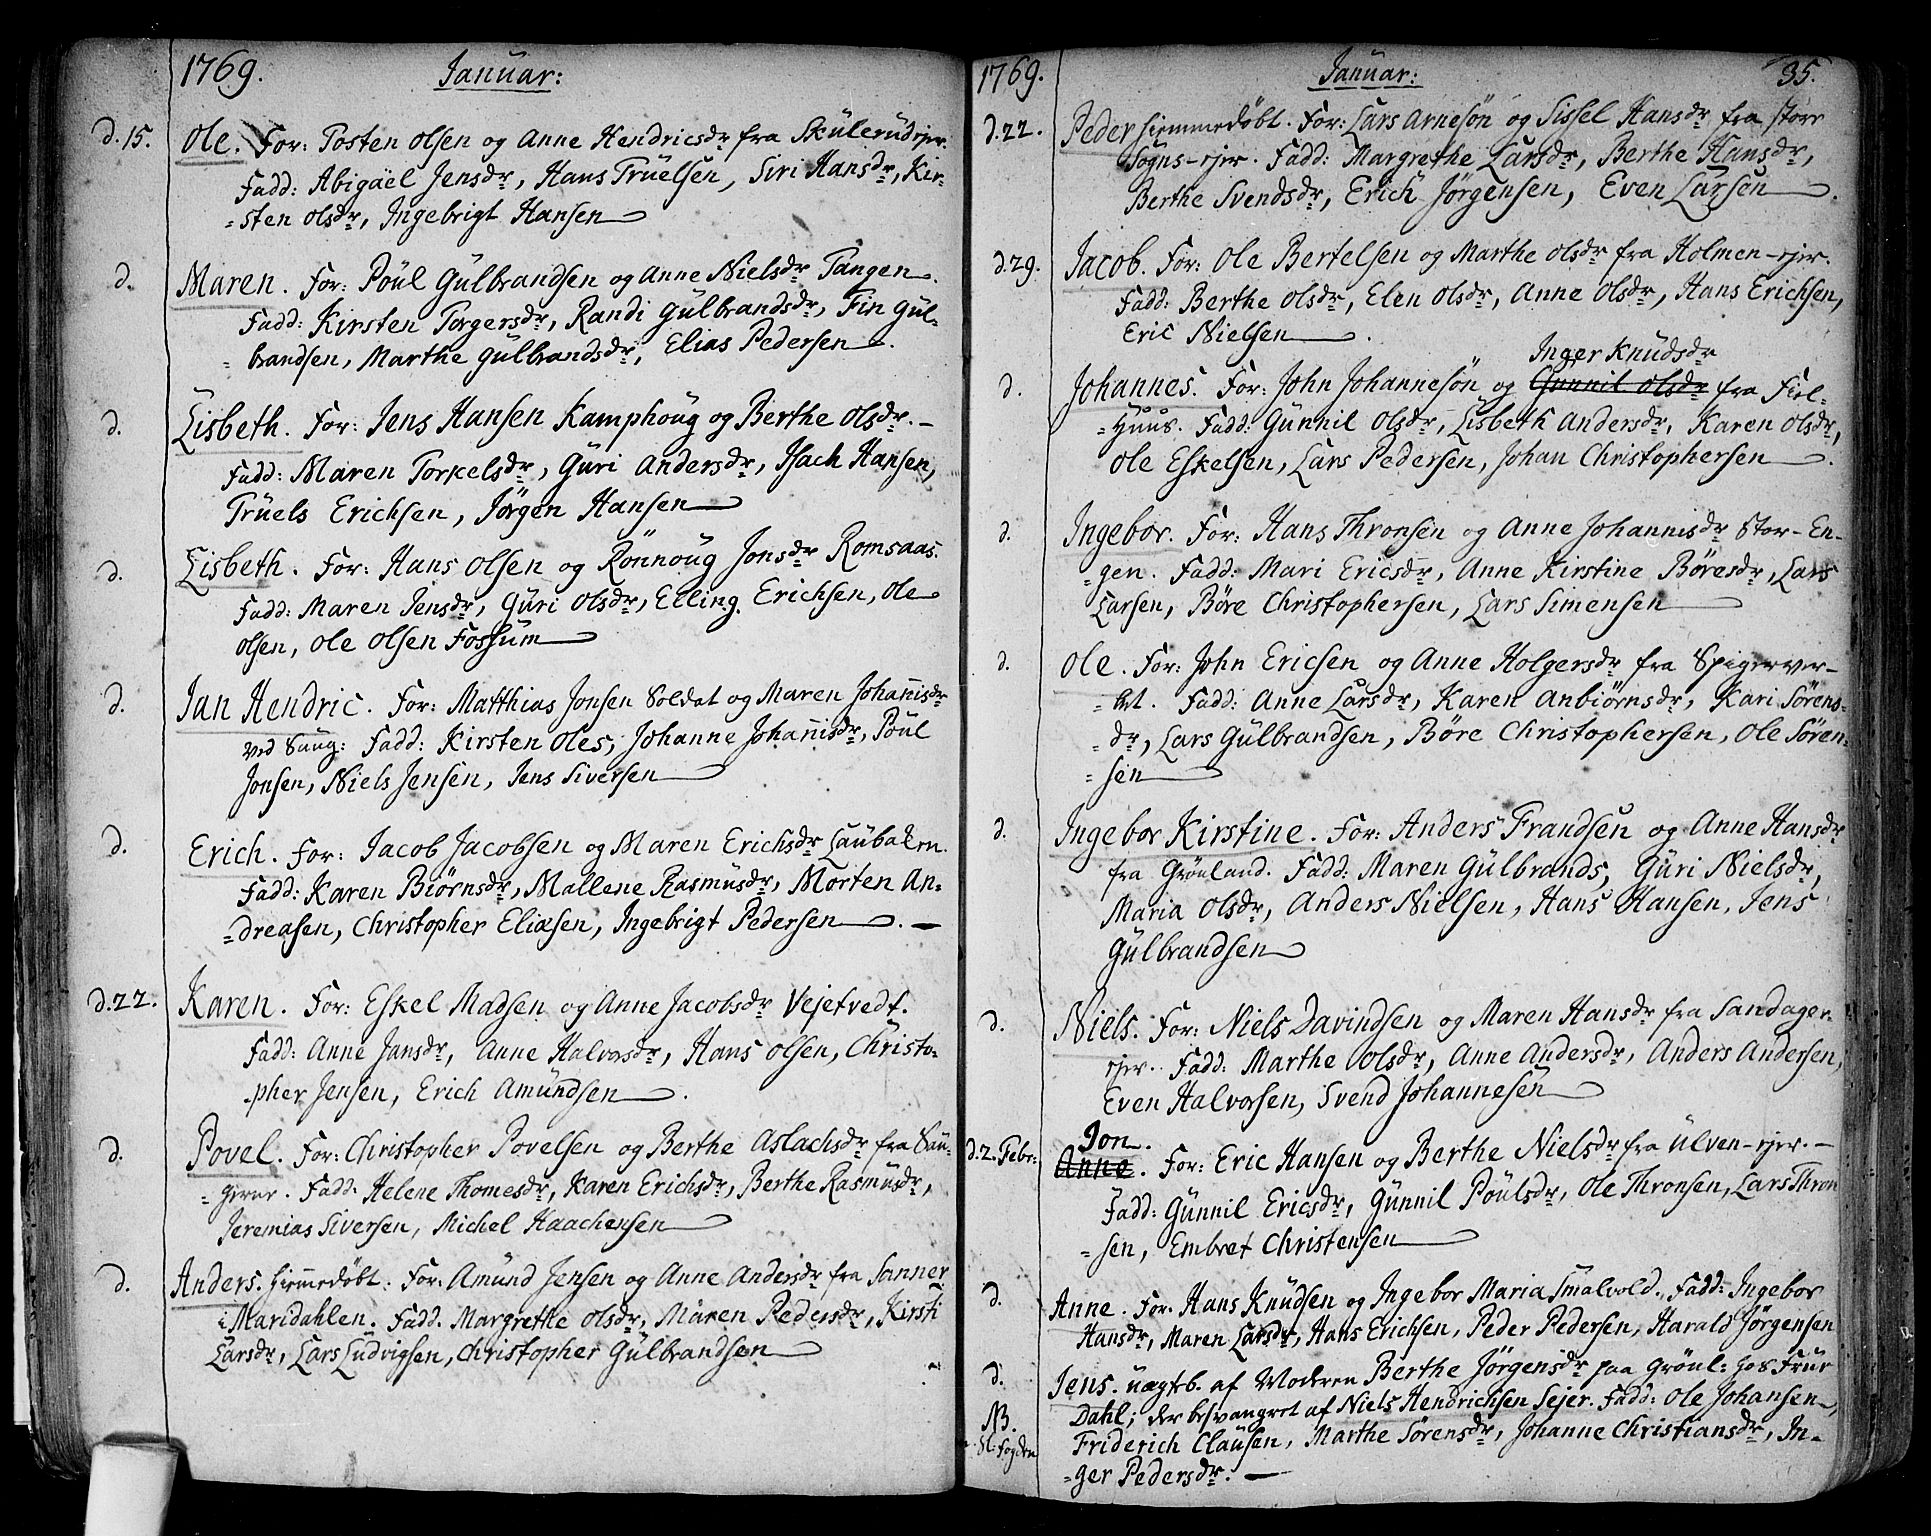 1769. Januar:
d. 15. Ole. For: Tosten Olsen og Anne Hendricsdr fra Skülerüdejer.
Fadd: Abigaël Jensdr, Hans Trüelsen, Siri Hansdr, Kir-
-sten Olsdr, Ingebrigt Hansen
d. Maren. For: Poül Gülbrandsen og Anne Nielsdr Tangen.
Fadd: Kirsten Torgersdr, Randi Gülbrandsdr, Fin Gül-
-brandsen, Marthe Gülbrandsdr, Elias Pedersen.
d. Lisbeth. For: Jens Hansen Kamphoüg og Berthe Olsdr. –
Fadd: Maren Torkelsdr, Güri Andersdr, Isach Hansen,
Trüels Erichsen, Jörgen Hansen
d. Lisbeth. For: Hans Olsen og Rönnoüg Jonsdr Romsaas.
Fadd: Maren Jensdr, Güri Olsdr, Elling Erichsen, Ole
Olsen, Ole Olsen Fossum
d. Jan Hendric. For: Matthias Jonsen Soldat og Maren Johañisdr
ved Saug: Fadd: Kirsten Oles, Johanne Johañisdr, Poül
Jonsen, Niels Jensen, Jens Siversen
d. Erich. For: Jacob Jacobsen og Maren Erichsdr Laübaken.
Fadd: Karen Biörnsdr, Mallene Rasmüsdr, Morten An-
-dreasen, Christopher Eliasen, Ingebrigt Pedersen. –
d. 22. Karen. For: Eskel Madsen og Anne Jacobsdr Vejetvedt.
Fadd: Anne Jansdr, Anne Halvorsdr, Hans Olsen, Christo-
-pher Jensen, Erich Amündsen.
d. Povel. For: Christopher Povelsen og Berthe Aslachsdr fra Saü-
Fadd: Helene Thomesdr, Karen Erichsdr, Berthe Rasmüsdr,
Jeremias Siversen, Michel Haachensen
d. Anders. Hiemmedöbt. For: Amünd Jensen og Anne Andersdr fra Sanner
i Maridahlen. Fadd. Margrethe Olsdr, Maren Pedersdr, Kirsti
Larsdr, Lars Lüdvigsen, Christopher Gülbrandsen
1769. Januar: 35.
d. 22. Peder hiemmedöbt. For: Lars Arnesön og Sissel Hansdr fra störe
Sogns-ejer. Fadd: Margrethe Larsdr, Berthe Hansdr,
Berthe Svendsdr, Erich Jörgensen, Even Larsen.
d. 29. Jacob. For: Ole Bertelsen og Marthe Olsdr fra Holmen-ejer.
Fadd: Berthe Olsdr, Elen Olsdr, Anne Olsdr, Hans Erichsen,
Eric Nielsen.
Inger Knüdsdr
d. Johannes. For: John Johannesön og Günnil Olsdr fra Fiel-
-Huus. Fadd: Günnil Olsdr, Lisbeth Andersdr, Karen Olsdr,
Ole Eskelsen, Lars Pedersen, Johan Christophersen.
d. Ingebor. For: Hans Thronsen og Anne Johannisdr Stor-En-
-gen. Fadd: Mari Ericsdr, Anne Kirstine Böresdr, Lars
Larsen, Böre Christophersen, Lars Simensen
d. Ole. For: John Ericsen og Anne Holgersdr fra Spigerver-
-ket. Fadd: Anne Larsdr, Karen Anbiörnsdr, Kari Sörens-
-dr, Lars Gülbrandsen, Böre Christophersen, Ole Sören-
-sen
d. Ingebor Kirstine. For: Anders Frandsen og Anne Hansdr
fra Grönland. Fadd: Maren Gülbrands, Güri Nielsdr,
Maria Olsdr, Anders Nielsen, Hans Hansen, Jens
Gülbrandsen
d. Niels. For: Niels Davindsen og Maren Hansdr fra Sandager-
ejer. Fadd: Marthe Olsdr, Anne Andersdr, Anders Andersen,
Even Halvorsen, Svend Johannesen
Jon.
d. 2. Febr: Anne. For: Eric Hansen og Berthe Nielsdr fra Ulven-ejer. –
Fadd: Günnil Ericsdr, Günnil Poülsdr, Ole Thronsen, Lars Thron
-sen, Embret Christensen
d. Anne. For. Hans Knüdsen og Ingebor Maria Smalvold. Fadd: Ingebor
Hansdr, Maren Larsdr, Hans Erichsen, Peder Pedersen, Harald Jörgensen
d. Jens. uægteb. af Moderen Berthe Jörgensdr paa Grönl: hos Frue
NB. Dahl; der besvangret af Niels Hendrichsen Sejer. Fadd: Ole Johansen,
Friderich Claüsen, Marthe Sörensdr, Johanne Christiansdr, In-
-ger Pedersdr. –